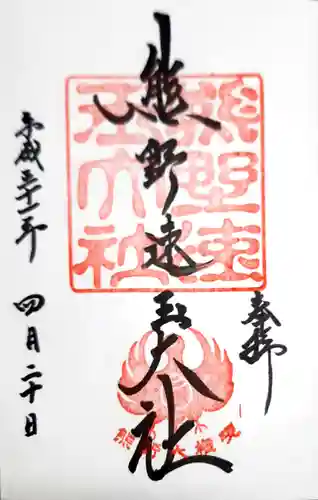 奉拝
熊野速玉大社
熊野速
玉大社
平成三十一年
四月二十日